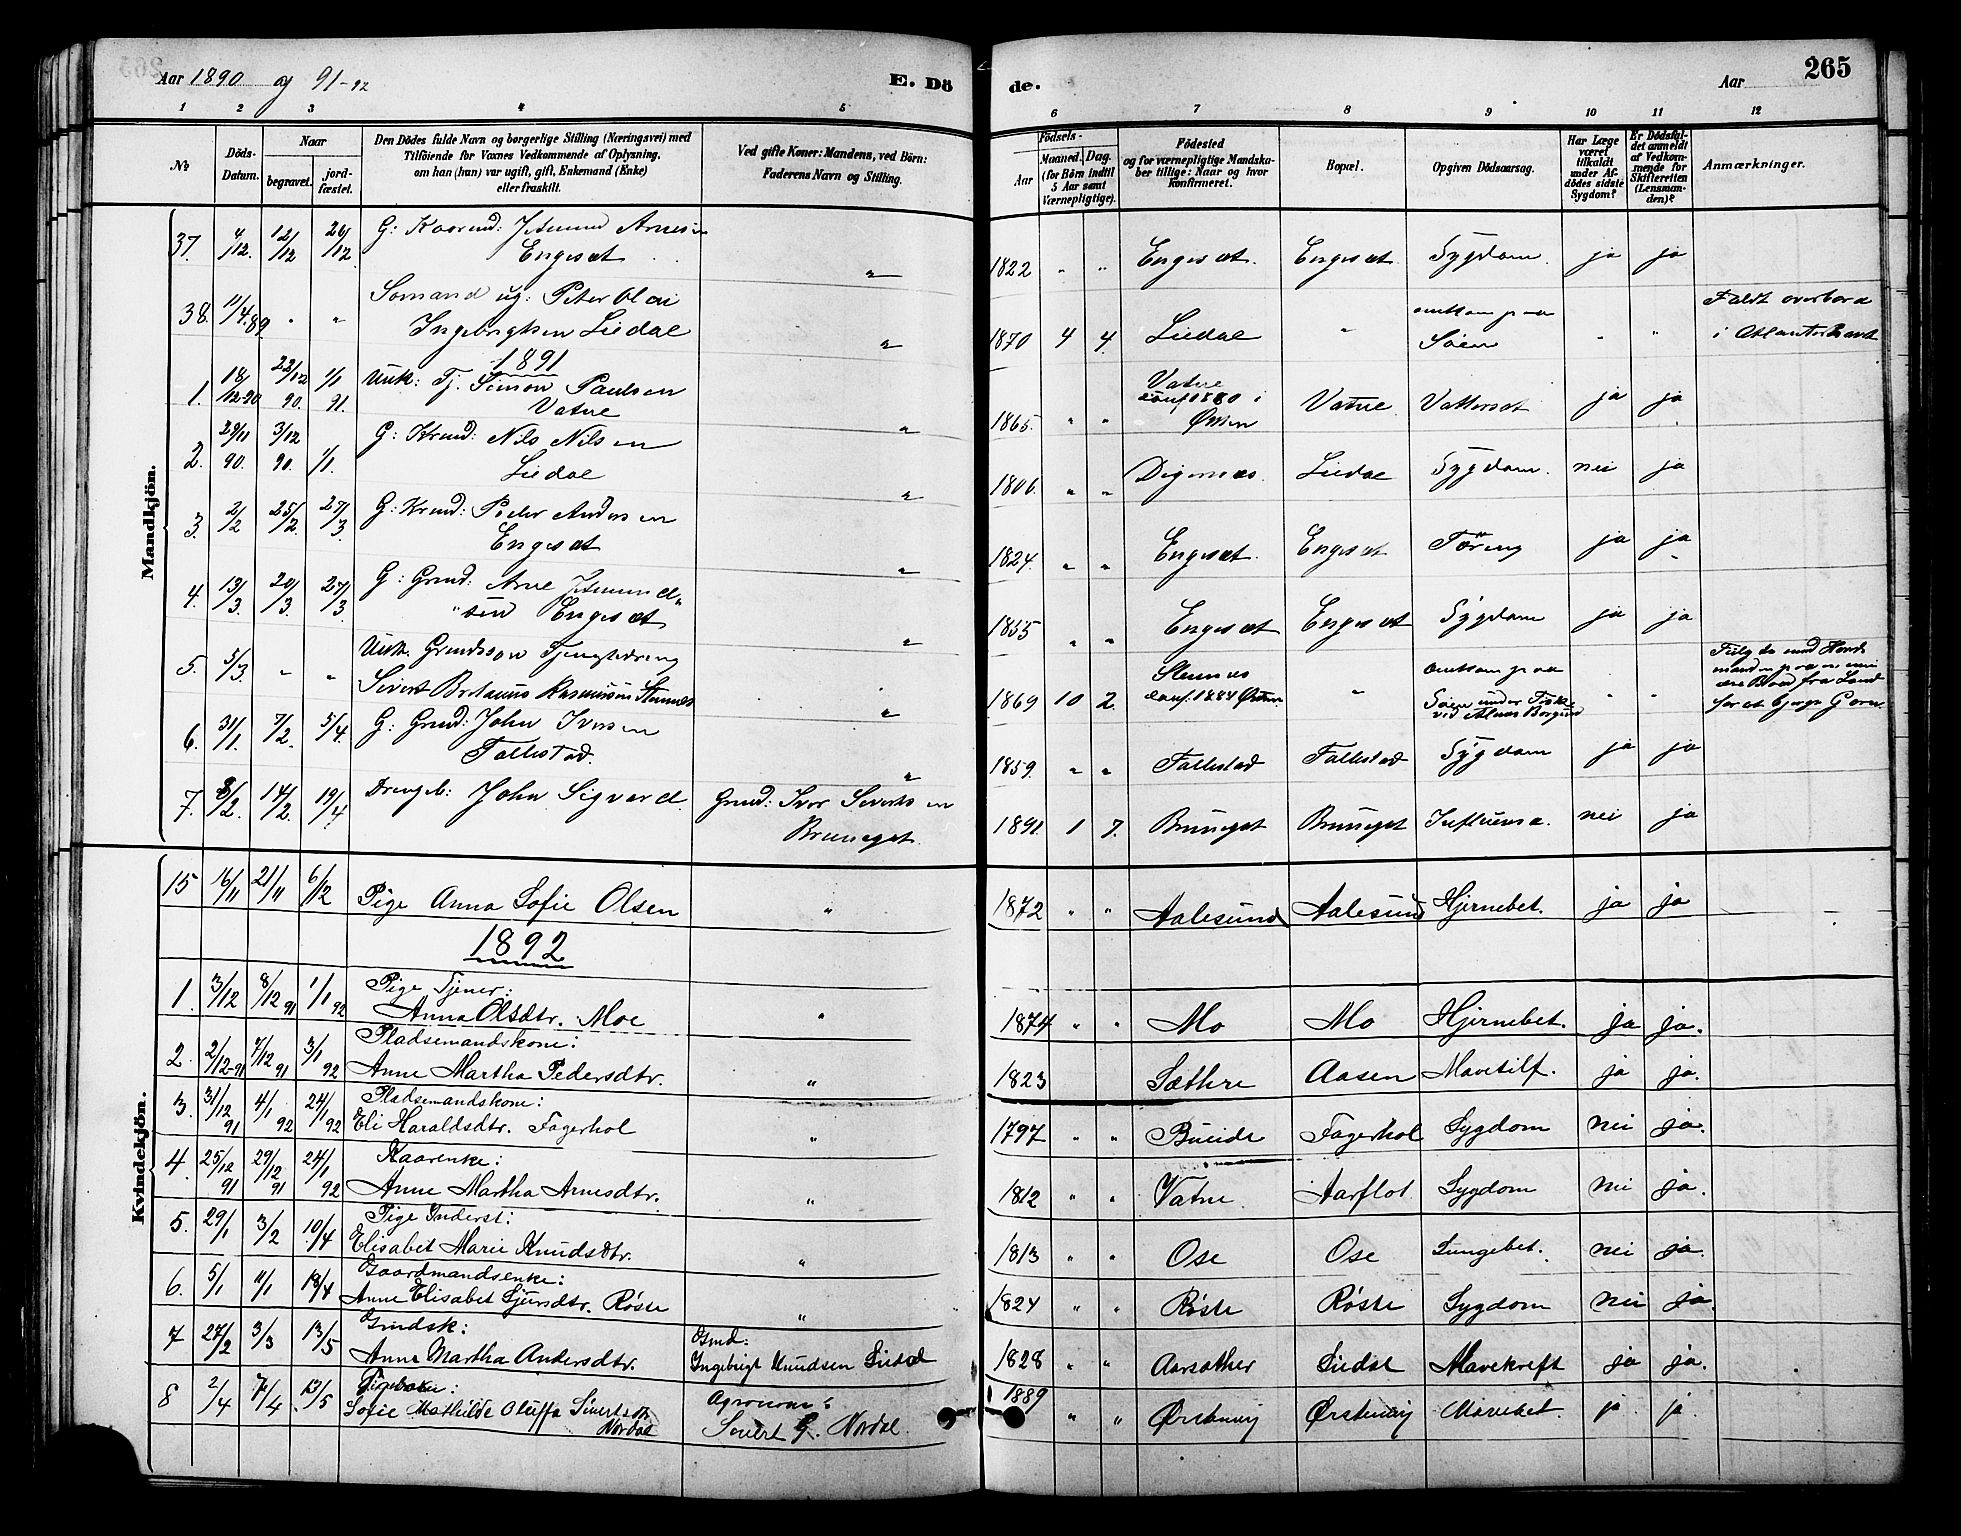 Aar 1890 og 91-92
E. Döde.
Aar
265
1 2 3 4 5 6 7 8 9 10 11 12
No
Döds-Datum.
Naar
begravet.
jord-fæstet.
Den Dödes fulde Navn og borgerlige Stilling (Næringsvei) med
Tilföiende for Voxnes Vedkommende af Oplysning,
om han (hun) var ugift, gift, Enkemand (Enke)
eller fraskilt.
Ved gifte Koner: Mandens, ved Börn:
Faderens Navn og Stilling.
Födsels-
Aar
Maaned. Dag.
(for Börn indtil
5 Aar samt
Værnepligtige).
Födested
og for værnepligtige Mandska-
ber tillige: Naar og hvor
konfirmeret.
Bopæl.
Opgiven Dödsaarsag.
Har Læge
været
tilkaldt
under Af-
dödes sidste
Sygdom?
Er Dödsfal-
det anmeldt
af Vedkom-
mende for
Skifteretten
(Lensman-
den)?
Anmærkninger.
Mandkjön.
37. 4/12. 12/12 26/12 G: Kaarmd: Arnesen
Engesæt " 1822 " " Engesæt. Engesæt Sygdom. ja ja
38. 11/4.89. " " Sømand ug: Peter Olai
Ingebrigtsen Liedal " 1870 4 4. Liedal " omkom paa Søen " " Faldt overbord
i Atlanterhavet
1891
1. 18/12-90 22/12 90. 1/1 91. Unk: Tj. Simon Paulsen
Vatne " 1865. " " Vatne conf 1880 i Ørsten Vatne Vattersot ja ja
2. 29/11 90. 3/12 90. 1/1. G: Krmd: Nils Nilsen
Liedal " 1806. " " Digernæs. Liedal Sygdom. nei ja
3. 2/2 25/2. 27/3. G: Krmd: Peder Andersen
Engesæt " 1824. " " Engesæt. Engesæt Tæring ja ja
4. 13/3. 20/3. 27/3. G: Grmd: Arne
sen Engesæt " 1855 " " Engesæt Engesæt Sygdom ja ja
5. 5/3. " " Unk. Grmdssøn Tjenestedreng
Sivert Rasmussen Stennes " 1869 10 2. Stennes conf. 1884 Ørsten " omkom paa
Søen under Fiske
ved Alnes Borgund " " Fulgte med Hoved
manden paa en min
dre Baad fra Land
for at bjerge Garn.
6. 31/1. 7/2. 5/4. G: Grmd: John Iversen
Follestad. " 1859. " " Follestad Follestad Sygdom ja ja
7. 8/2. 14/2. 19/4. Drengeb: John Sigvard. Grmd: Ivar Sivertsen
Bruneset. 1891. 1 7. Bruneset Bruneset Influensa. nei ja
Kvindekjön.
15 16/11 21/11 6/12 Pige Anna Sofie Olsen " 1872 " " Aalesund Aalesund Hjernebet. ja ja
1892
1. 3/12 8/12 91 1/1 92 Pige Tjener:
Anna Olsdtr. Moe " 1874 " " Mo Mo Hjernebet. ja ja.
2. 2/12-91 7/12 91 3/1 92 Pladsemandskone:
Anne Martha Pedersdtr. " 1823 Sæthre Aasen Mavetilf. ja ja.
3. 31/12 91 4/1 92 24/1 92 Pladsemandskone:
Eli Haraldsdtr. Fagerhol " 1797 " " Bueide Fagerhol Sygdom nei ja.
4. 25/12 91 29/12 91 24/1 92 Kaarenke:
Anne Martha Arnesdtr. " 1812 " " Vatne. Aarflot Sygdom nei ja.
5. 29/1 3/2 10/4 Pige Inderst:
Elisabet Marie Knudsdtr. " 1813 " " Ose Ose Lungebet. nei ja.
6. 5/1 11/1 18/4 Gaardmandsenke:
Anne Elisabet Sjursdtr. Røste " 1824 " " Røste Røste Sygdom nei ja.
7 27/2 3/3 13/5 Gmdsk:
Anne Martha Andersdtr. Gmd:
Ingebrigt Knudsen Liedal 1828 " " Aarsæther Liedal Mavekræft ja ja.
8 2/4 7/4 13/5 Pigebarn:
Sofie Mathilde Oluffa Sivertsdtr.
Nordal Agronom:
Sivert G. Nordal. 1889 " " Ørstenvig Ørstenvig Mavebet. ja. ja.